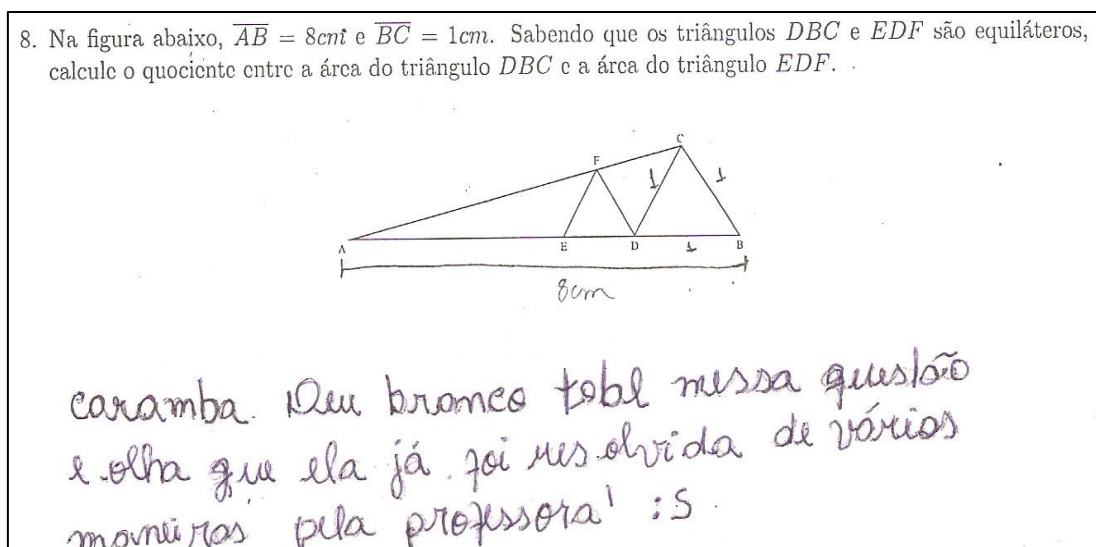 8. Na figura abaixo, AB = 8cm e BC = 1cm. Sabendo que os triângulos DBC e EDF são equiláteros,
calcule o quociente entre a área do triângulo DBC e a área do triângulo EDF.
C
F
1
1
A
E
D
1
B
8cm
caramba. Deu branco total nessa questão
e olha que ela já foi resolvida de vários
maneiras pela professora! :S